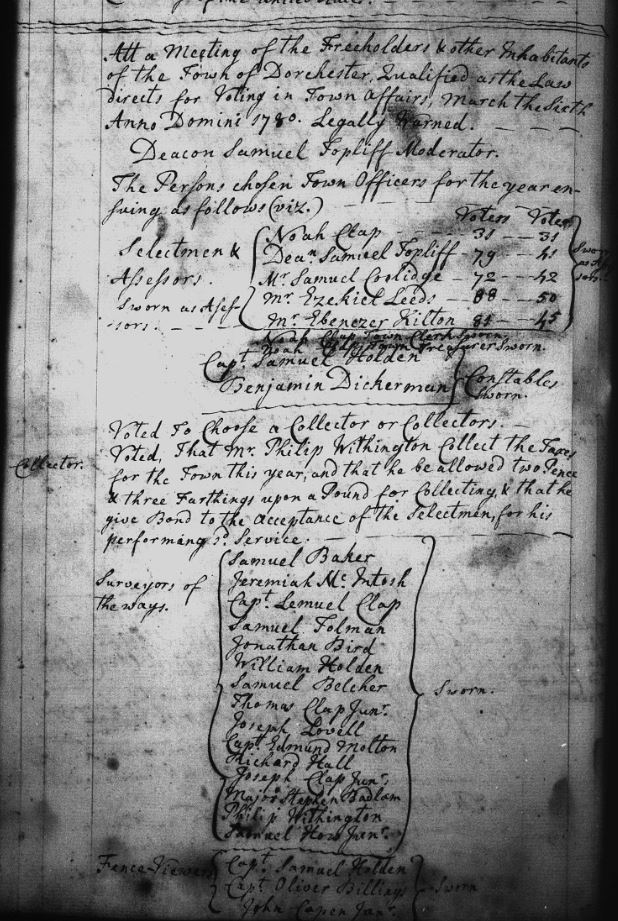 of the United States.
Att a Meeting of the Freeholders & other Inhabitants
of the Town of Dorchester, Qualified as the Law
directs for Voting in Town Affairs, March the Sixth
Anno Domini 1780. Legally Warned.
Deacon Samuel Topliff Moderator.
The Persons chosen Town Officers for the year en-
suing as follows (viz.)
Voters Votes
Selectmen &
Assessors.
Sworn as Asses-
sors.
Noah Clap 31 31
Dean. Samuel Topliff 79 41
Mr. Samuel Coolidge 72 42
Mr. Ezekiel Leeds 88 50
Mr. Ebenezer Kilton 81 45
Noah Clap Town Clerk Sworn.
Treasurer Sworn.
Capt. Samuel Holden
Benjamin Dickerman
Constables
Sworn.
Voted To Choose a Collector or Collectors.
Collector.
Voted, That Mr. Philip Withington Collect the Taxes
for the Town this year, and that he be allowed two Pence
& three Farthings upon a Pound for Collecting, & that he
give Bond to the Acceptance of the Selectmen, for his
performing sd. Service.
Surveyors of
the ways.
Samuel Baker
Jeremiah Mc. Intosh
Capt. Lemuel Clap
Samuel Tolman
Jonathan Bird
William Holden
Samuel Belcher
Thomas Clap Junr.
Joseph Lovell
Capt. Edmund Molton
Richard Hall
Joseph Clap Junr.
Major Stephen Badlam
Philip Withington
Samuel How Junr.
Sworn.
Fence Viewers
Capt. Samuel Holden
Capt. Oliver Billings
John Capen Junr.
Sworn